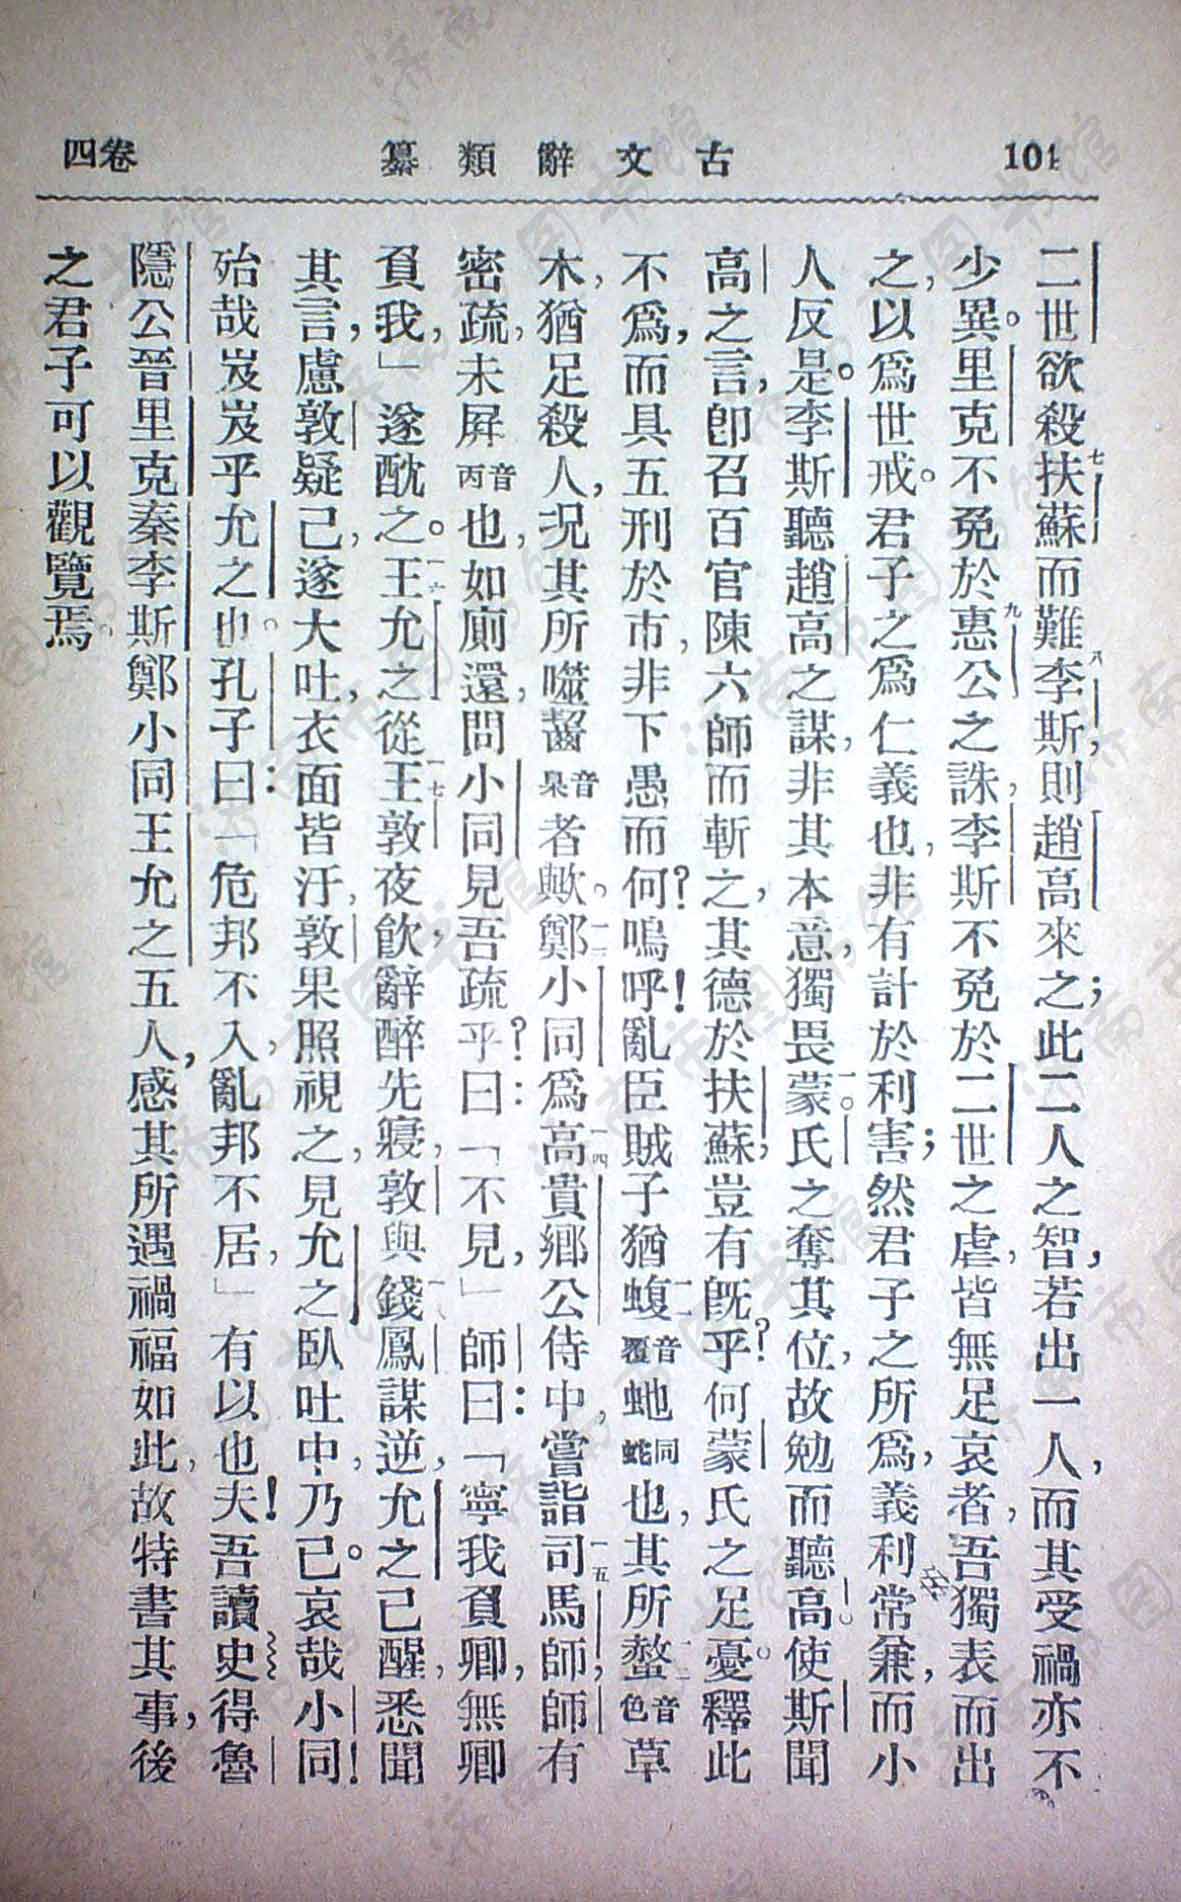 101
古文辭類纂
卷四
二世欲殺扶七蘇而難李八斯，則趙高來之；此二人之智，若出一人，而其受禍亦不
少異。里克不免於惠九公之誅，李斯不免於二世之虐，皆無足哀者，吾獨表而出
之，以爲世戒。君子之爲仁義也，非有計於利害；然君子之所爲，義利常兼，而小
人反是。李斯聽趙高之謀，非其本意，獨畏蒙一〇氏之奪其位，故勉而聽高。使斯聞
高之言，卽召百官陳六師而斬之，其德於扶蘇，豈有旣乎？何蒙氏之足憂。釋此
不爲，而具五刑於市，非下愚而何？嗚呼！亂臣賊子猶蝮一一音覆虵同蛇也，其所螫一二音色草
木，猶足殺人，況其所噬齧音臬者歟。鄭一三小同爲高一四貴鄉公侍中，嘗詣司一五馬師，師有
密疏，未屏音丙也，如廁還，問小同見吾疏乎？曰：「不見，」師曰：「寧我負卿，無卿
負我，」遂酖之。王一六允之從王一七敦夜飮，辭醉先寢，敦與錢一八鳳謀逆，允之已醒，悉聞
其言，慮敦疑己，遂大吐，衣面皆汙，敦果照視之，見允之臥吐中，乃已。哀哉小同！
殆哉岌岌乎允之也。孔子曰：「危邦不入，亂邦不居，」有以也夫！吾讀史得魯
隱公晉里克秦李斯鄭小同王允之五人，感其所遇禍福如此，故特書其事，後
之君子可以觀覽焉。